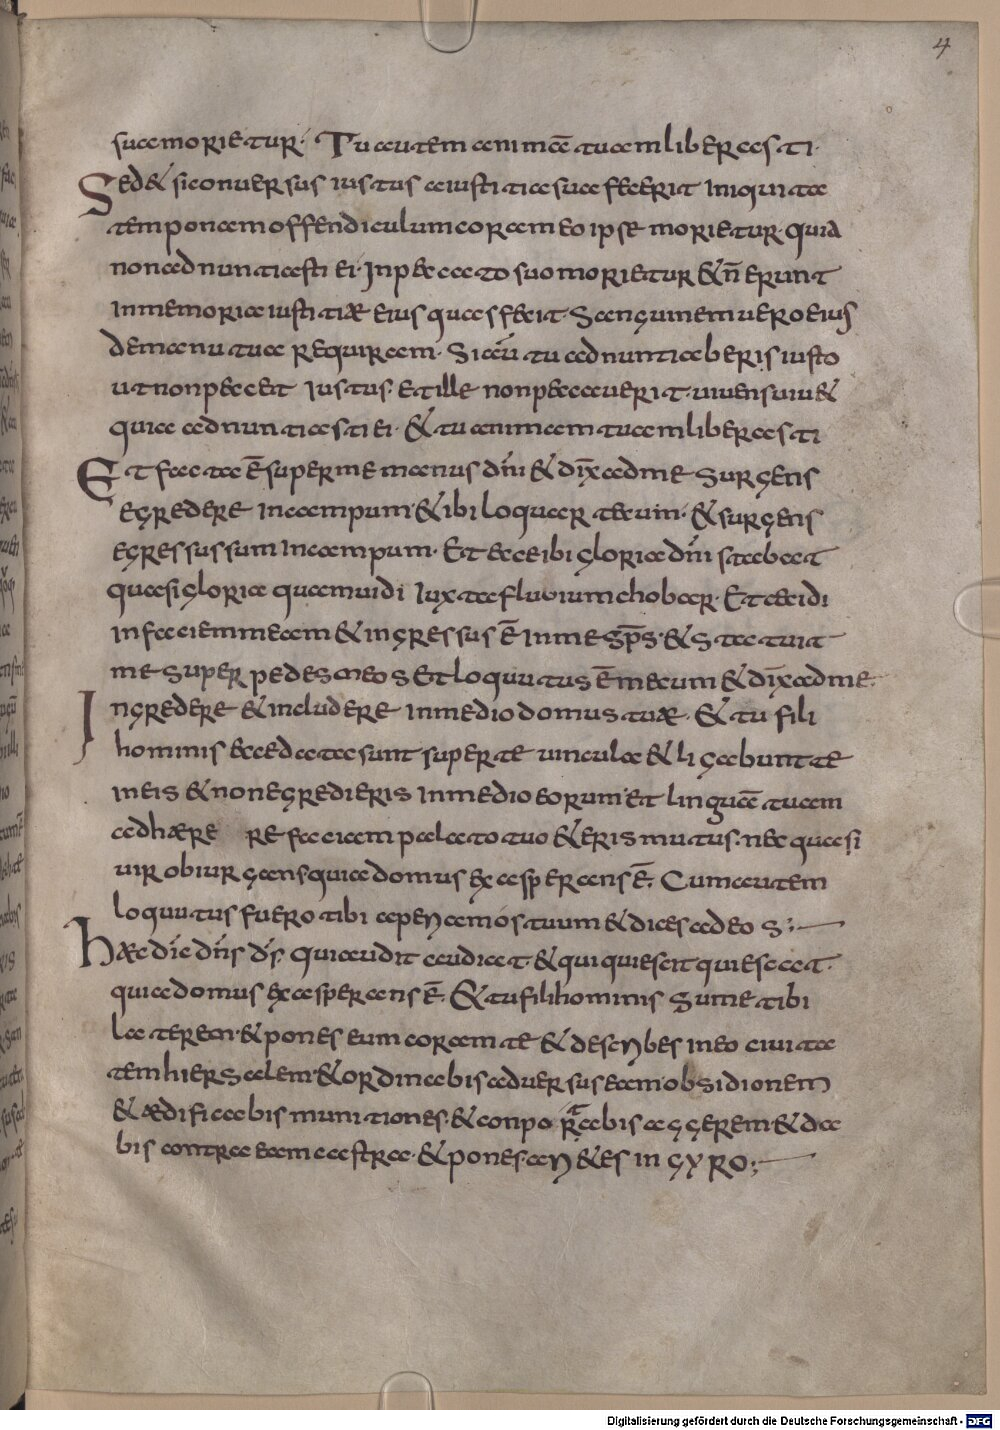 4
sua morietur· Tu autem animā tuam liberasti·
Sed & si conuersus iustus a iustitia sua fecerit iniquita
tem ponam offendiculum coram eo ipse morietur· quia
non adnuntiasti ei· In peccato suo morietur & n̄ erunt
in memoria iustitiæ eius quas fecit· Sanguinem uero eius
de manu tua requiram· Si aū tu adnuntiaberis iusto
ut non peccet iustus· et ille non peccauerit· uiuens uiu&
quia adnuntiasti ei· & tu animam tuam liberasti
Et facta ē super me manus dn̄i & dix̄ ad me Surgens
egredere in campum· & ibi loquar tecum· & surgens
egressus sum in campum· Et ecce ibi gloria dn̄i stabat
quasi gloria quam uidi iuxta fluuium chobar· Et cecidi
in faciem meam & ingressus ē in me sp̄s· & statuit
me super pedes meos Et loquutus ē mecum & dix̄ ad me·
Ingredere & includere in medio domus tuæ· & tu fili
hominis ecce data sunt super te uincula & ligabunt te
in eis & non egredieris in medio eorum· et linguā tuam
adhære re faciam palato tuo & eris mutus· nec quasi
uir obiurgans quia domus exasperans ē· Cum autem
loquutus fuero tibi aperiam os tuum & dices ad eos;
Hæc dic̄ dn̄s d̄s· qui audit audiat· & qui quiescit quiescat·
quia domus exasperans ē· & tu fili hominis sume tibi
laterem· & pones eum coram te & describes in eo ciuita
tem hiersalem· & ordinabis aduersus eam obsidionem
& ædificabis munitiones· & conportabis aggerem· & da
bis contra eam castra· & pones ari&es in gyro;
Digitalisierung gefördert durch die Deutsche Forschungsgemeinschaft - DFG